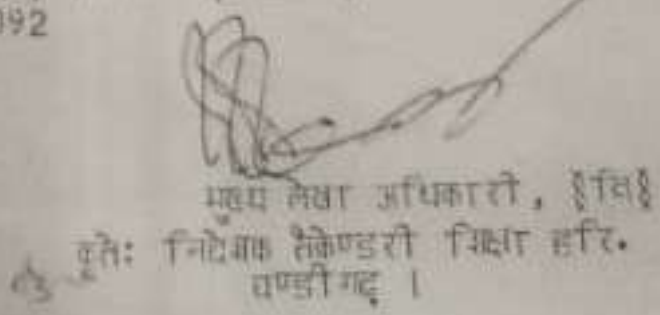 992
मुख्य लेखा अधिकारी, §वि§
कृते: निदेशक सैकेण्डरी शिक्षा हरि.
चण्डीगढ़ ।